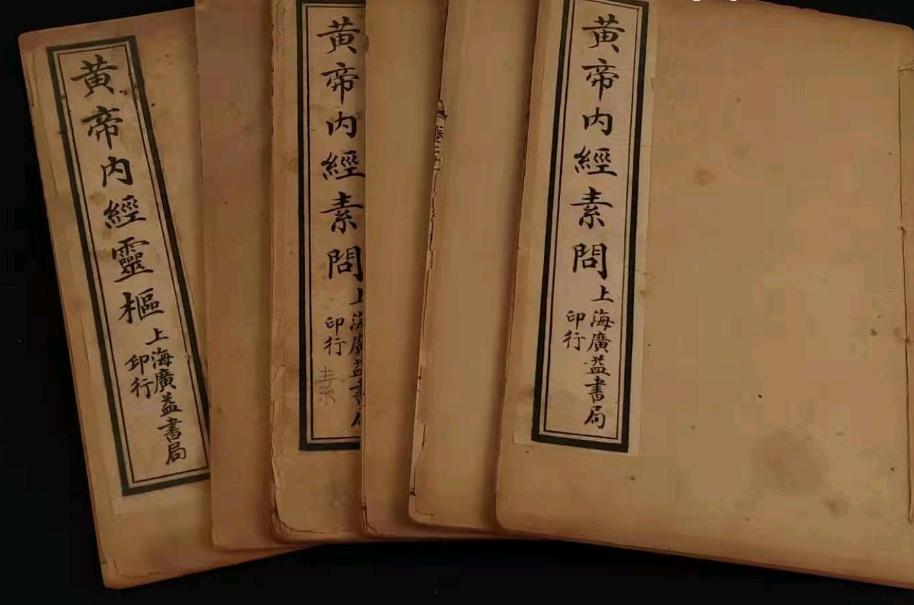 黃帝內經素問
上海廣益書局
印行
黃帝內經素問
上海廣益書局
印行
素
黃帝內經靈樞
上海廣益書局
印行